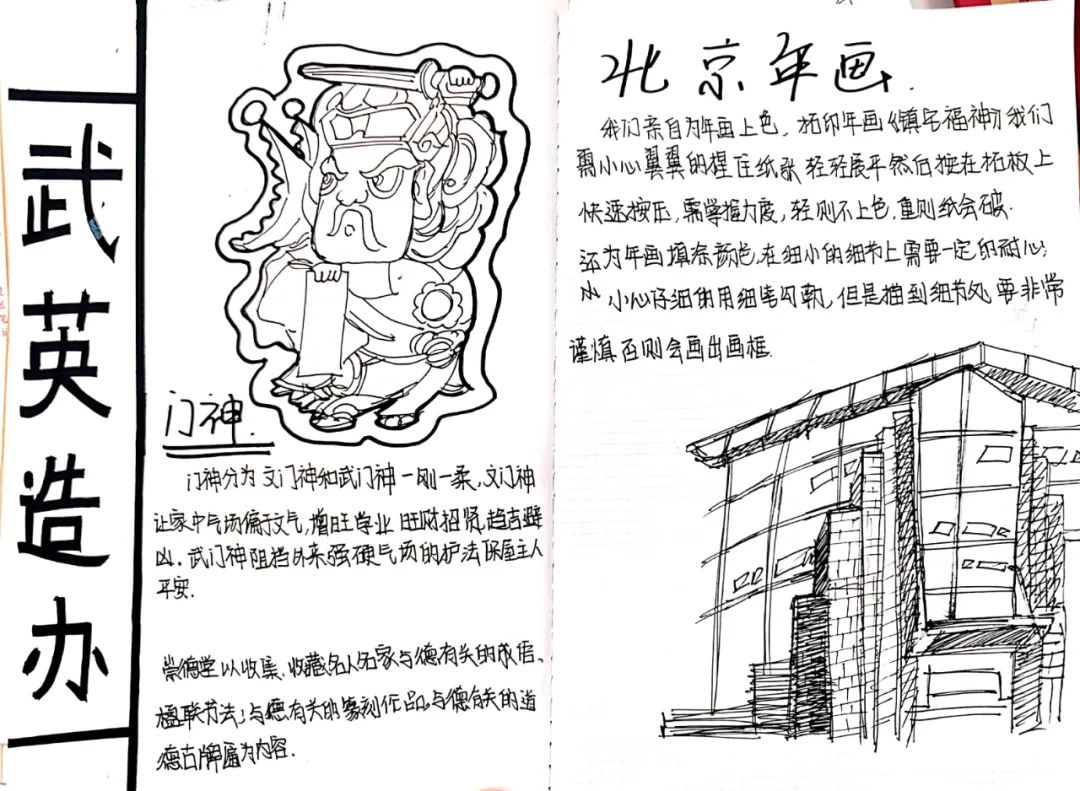 武英造办
门神
门神分为文门神和武门神一刚一柔,文门神
让家中气场偏于文气,增旺学业 旺财招贤,趋吉避
凶.武门神阻挡外来强硬气场的护法保屋主人
平安.
崇德堂以收集、收藏名人名家与德有关的成语、
楹联书法;与德有关的篆刻作品,与德有关的道
德古牌匾为内容.
北京年画.
我们亲自为年画上色,拓印年画《镇宅福神》我们
需小心翼翼的捏住纸张 轻轻展平然后按在拓板上
快速按压,需掌握力度,轻则不上色,重则纸会破.
还为年画填涂颜色,在细小的细节上需要一定的耐心;
小心仔细的用细笔勾勒,但是描到细节处要非常
谨慎 否则会画出画框.